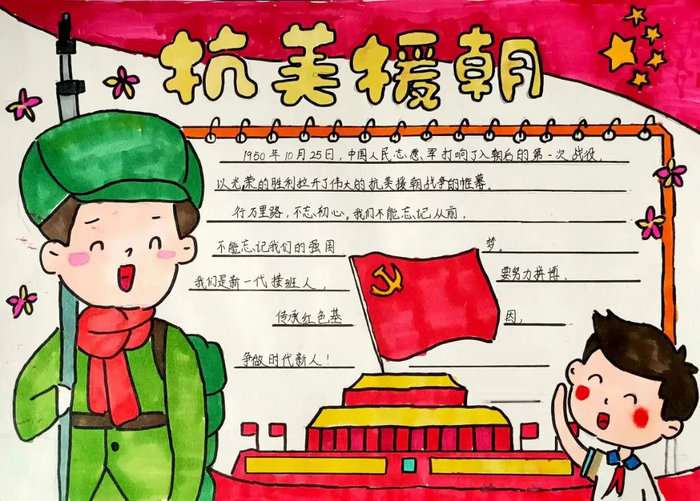 抗美援朝
1950年10月25日，中国人民志愿军打响了入朝后的第一次战役，
以光荣的胜利拉开了伟大的抗美援朝战争的帷幕。
行万里路，不忘初心，我们不能忘记从前，
不能忘记我们的强国梦。
我们是新一代接班人，要努力拼博，
传承红色基因，
争做时代新人！